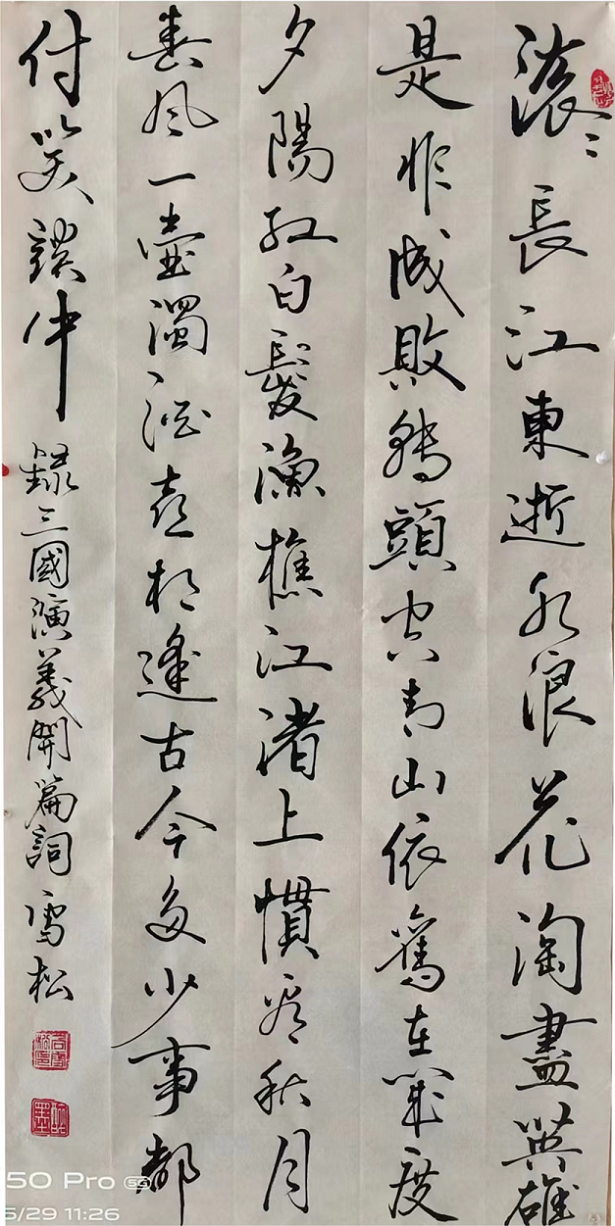 滾々長江東逝水浪花淘盡英雄
是非成敗轉頭空青山依舊在幾度
夕陽紅白髮漁樵江渚上慣看秋月
春風一壺濁酒喜相逢古今多少事都
付笑談中
錄三國演義開篇詞雪松
50 Pro 5G
5/29 11:26